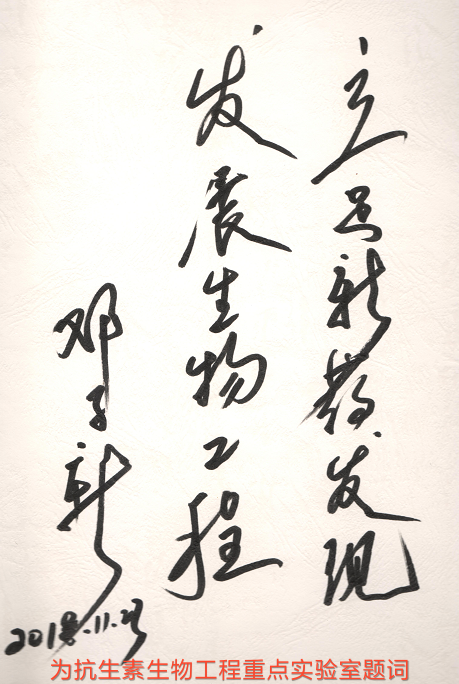 立足新药发现
发展生物工程
邓子新
为抗生素生物工程重点实验室题词